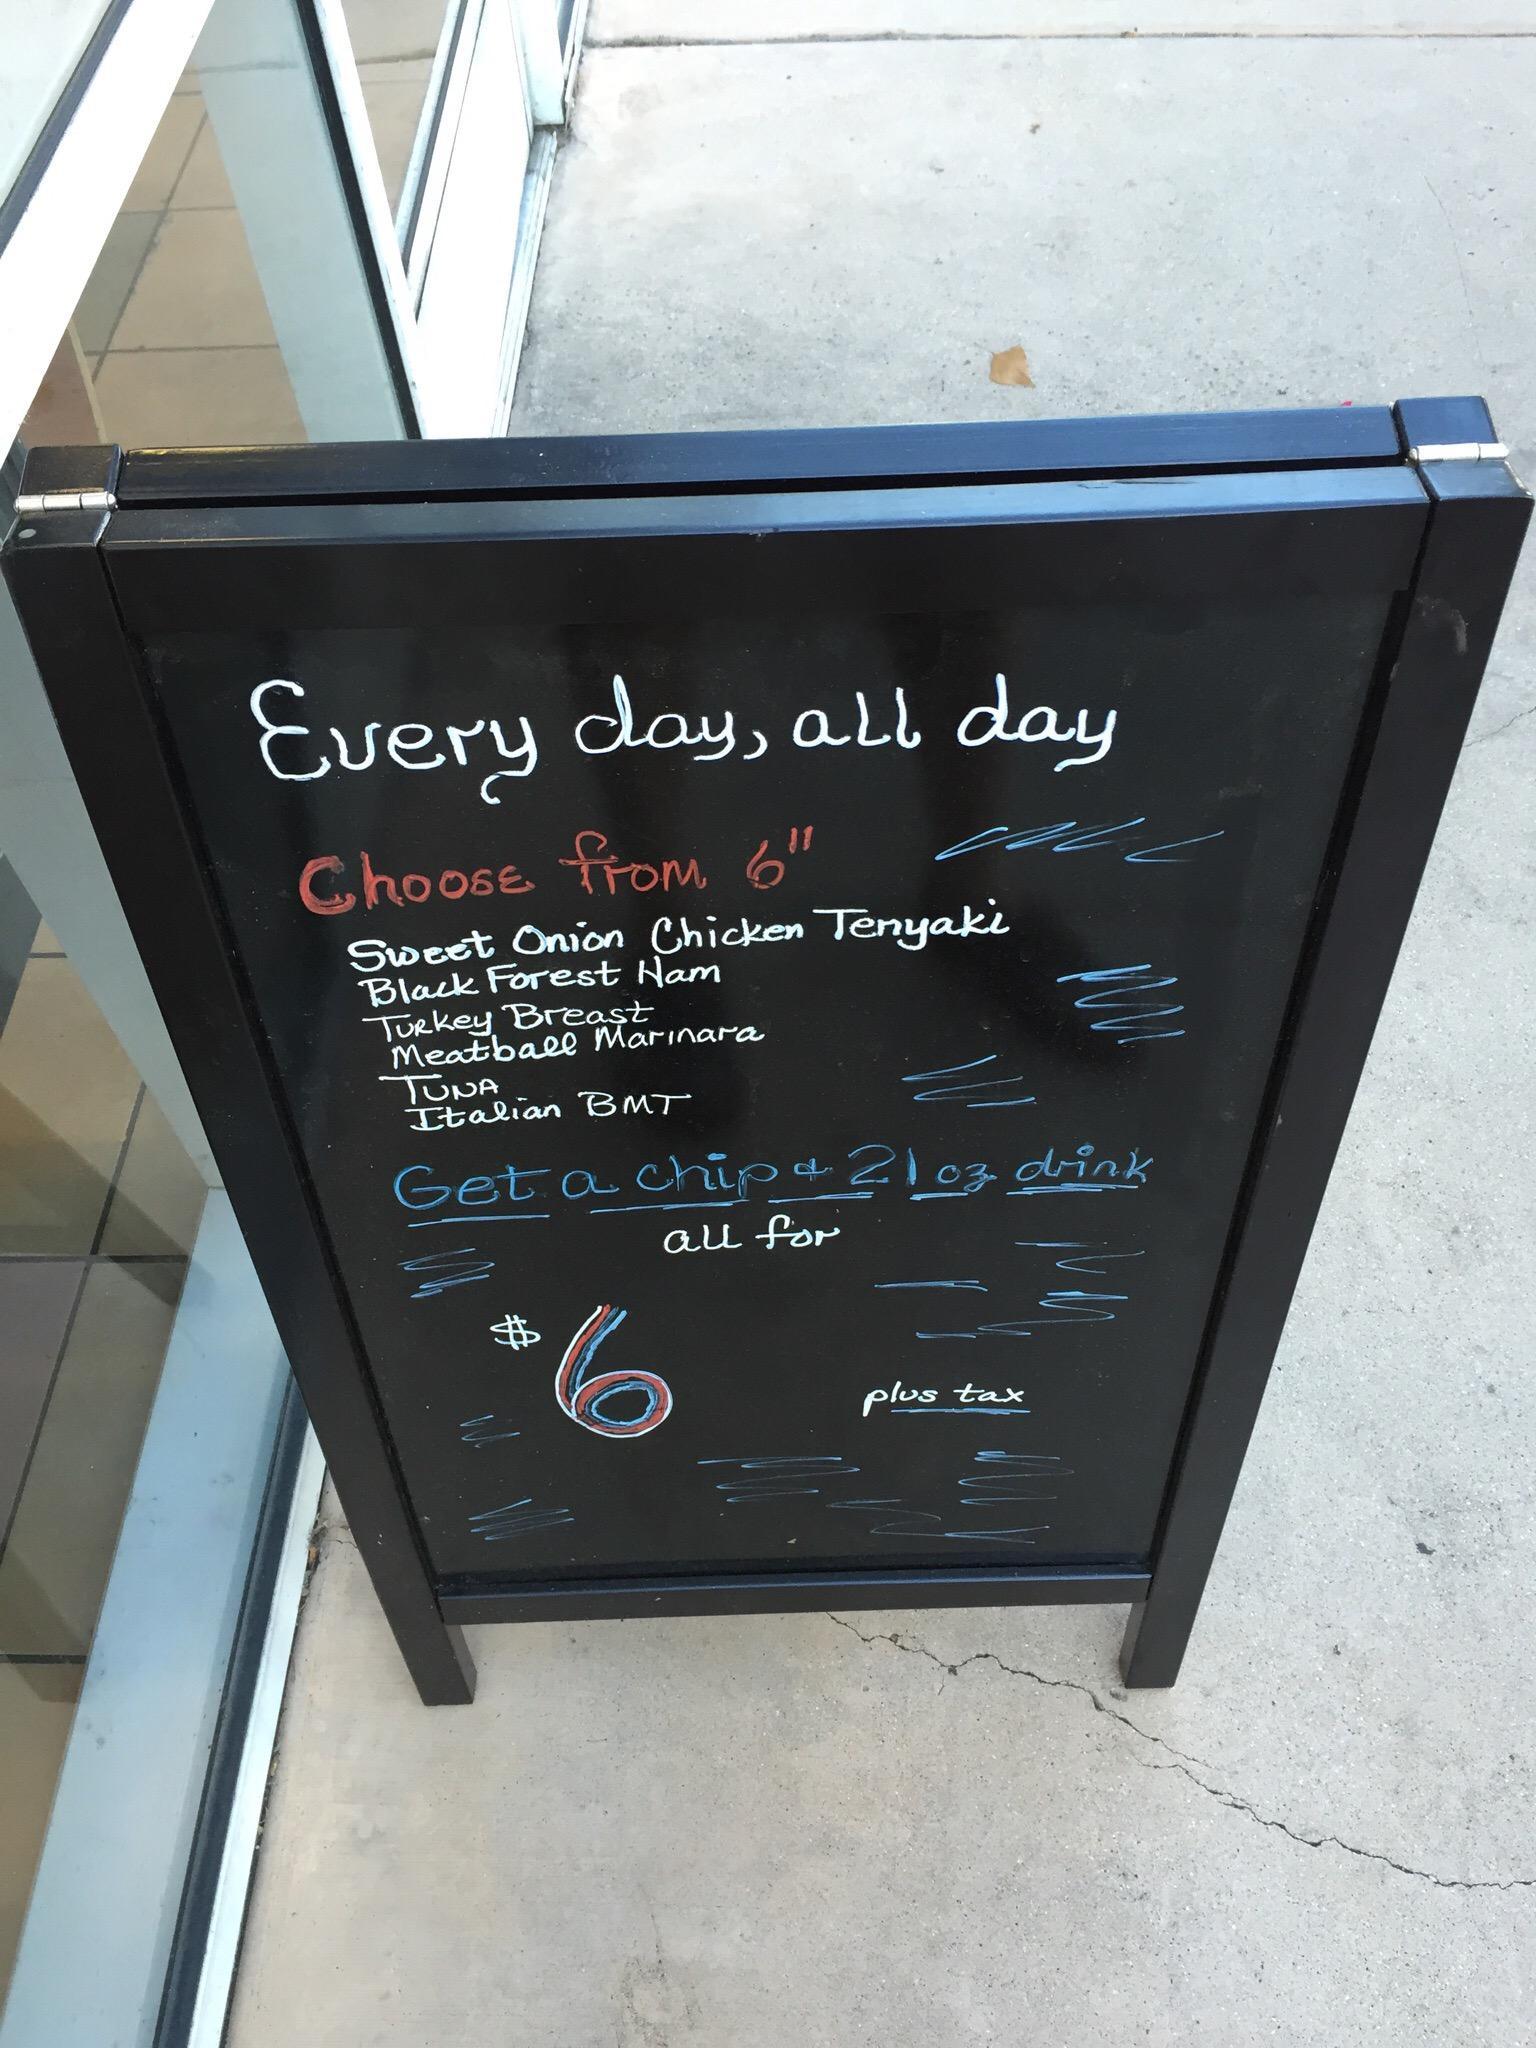 Every day, all day
Choose from 6"
Sweet Onion Chicken Teriyaki
Black Forest Ham
Turkey Breast
Meatball Marinara
TUNA
Italian BMT
Get a chip & 21 oz drink
all for
$6
plus tax